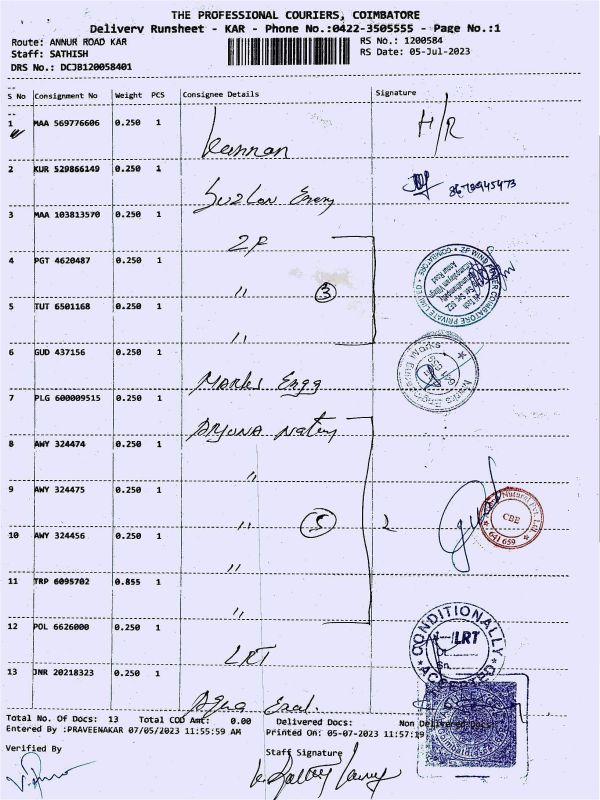 THE PROFESSIONAL COURIERS, COIMBATORE
Delivery Runsheet - KAR - Phone No.:0422-3505555 - Page No.:1
Route: ANNUR ROAD KAR RS No.: 1200584
Staff: SATHISH RS Date: 05-Jul-2023
DRS No.: DCJB120058401
S No Consignment No Weight PCS Consignee Details Signature
1 MAA 569776606 0.250 1 Kannan H/R
2 KUR 529866149 0.250 1 Suzlon Energy
3 MAA 103813570 0.250 1 ZF
4 PGT 4620487 0.250 1 〃 3
5 TUT 6501168 0.250 1 〃
6 GUD 437156 0.250 1 Marks Engg
7 PLG 600009515 0.250 1 Arjuna Natry
8 AWY 324474 0.250 1 〃
9 AWY 324475 0.250 1 〃 5
10 AWY 324456 0.250 1 〃
CBE
641 659
11 TRP 6095702 0.855 1 〃
12 POL 6626000 0.250 1 LRT
CONDITIONALLY
LRT
ACCEPTED
13 JNR 20218323 0.250 1
Total No. Of Docs: 13 Total COD Amt: 0.00 Delivered Docs: Non Delivered Docs:
Entered By :PRAVEENAKAR 07/05/2023 11:55:59 AM Printed On: 05-07-2023 11:57:19
Verified By Staff Signature